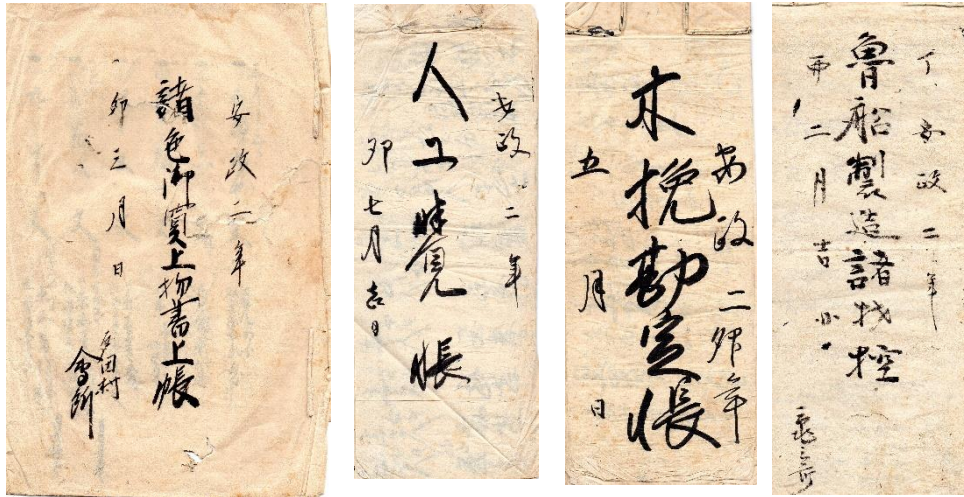 安政二年
諸色御買上物書上帳
卯三月日
戸田村
會所
安政二年
人工覚帳
卯七月吉日
安政二卯年
木挽勘定帳
五月日
安政二年
魯船製造諸控
二月吉日